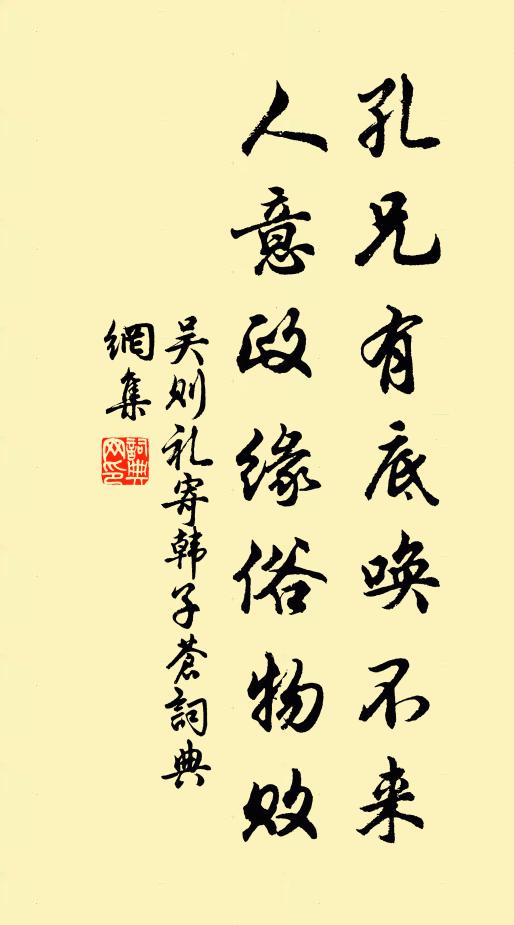 孔兄有底唤不来
人意政缘俗物败
吴则礼寄韩子苍詞典
網集
詞典
网印